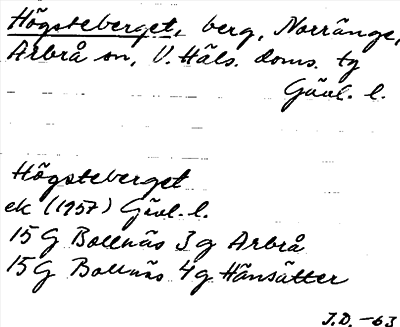 Högsteberget, berg, Norränge,
Arbrå sn, V. Häls. doms. tg
Gävl. l.
Högsteberget
ek (1957) Gävl. l.
15G Bollnäs 3g Arbrå
15G Bollnäs 4g Hänsätter
J.D. -63